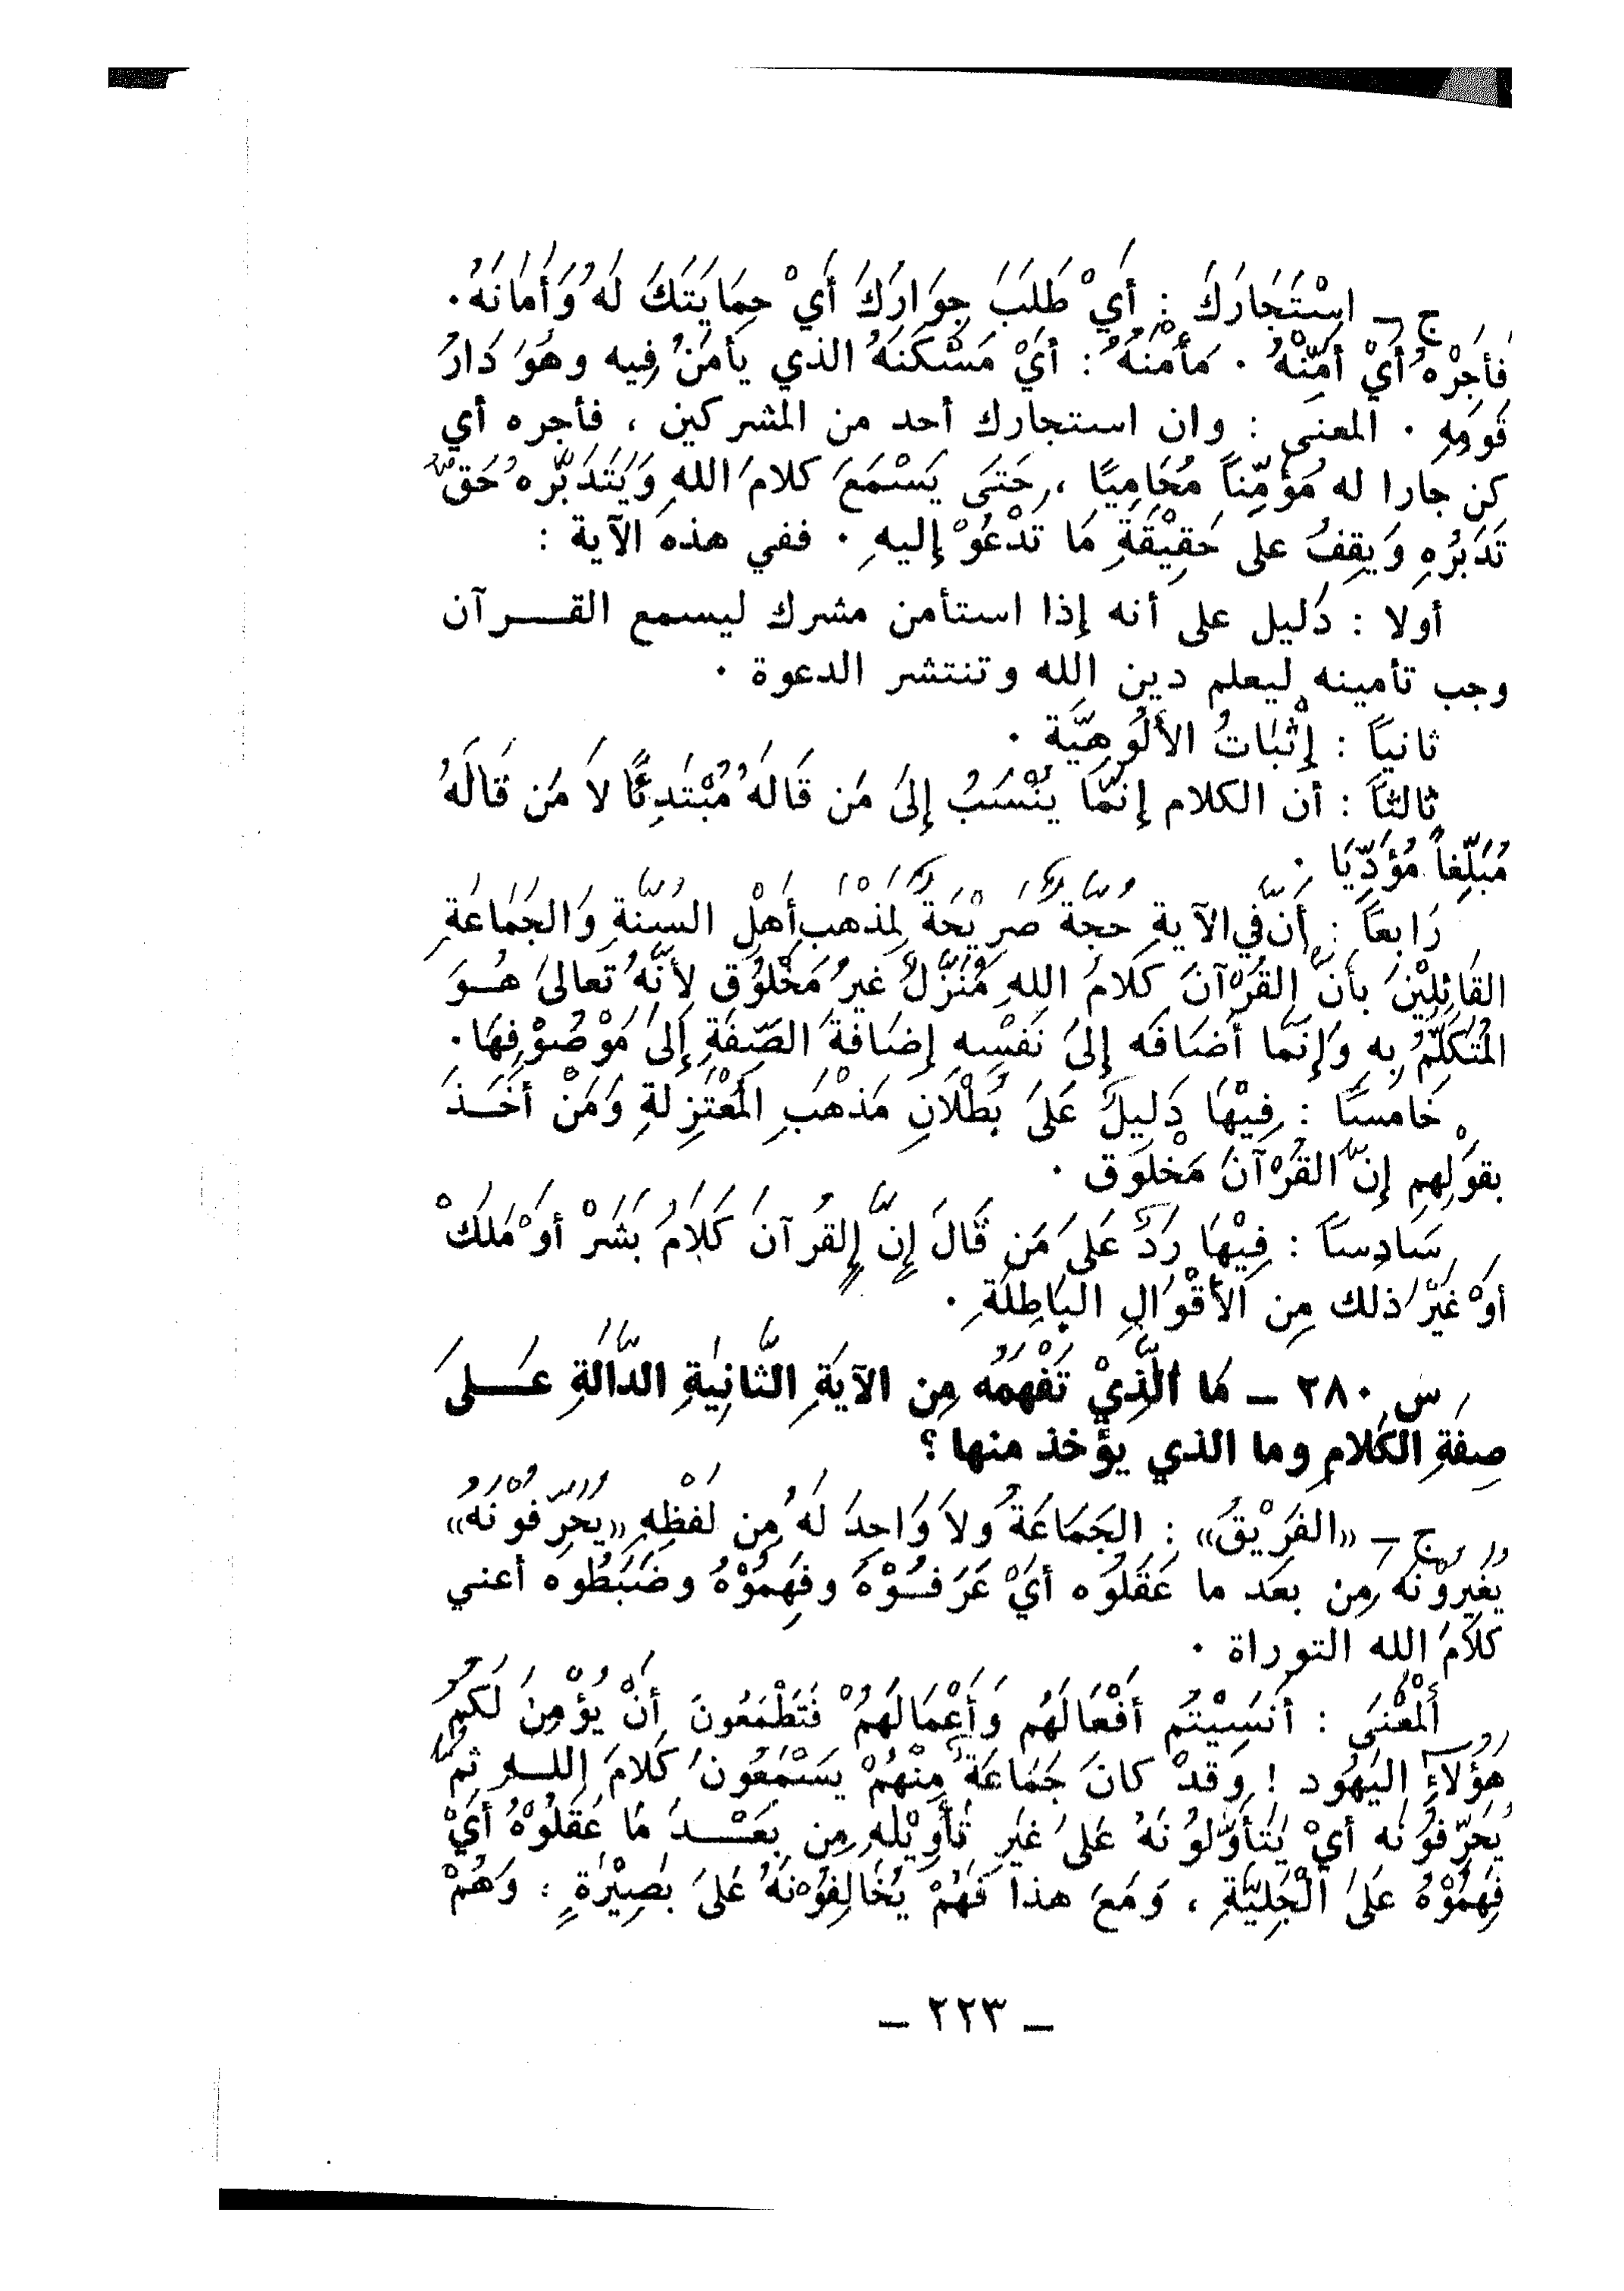 ج ــ اسْتَجَارَكَ : أَيْ طَلَبَ جِوَارَكَ أَيْ حِمَايَتَكَ لَهُ وَأَمَانَهُ .
فَأَجِرْهُ أَيْ أَمِّنْهُ . مَأْمَنَهُ : أَيْ مَسْكَنَهُ الذي يَأمَنُ فِيه وهُوَ دَارُ
قَومِهِ . المعنى : وان استجارك أحد من المشركين ، فأجره أي
كن جارا له مُؤَمِّناً مُحَامِيًا ، حَتَى يَسْمَعَ كلامَ اللهِ وَيَتَدَبَّره حَقَّ
تَدَبُّرِهِ وَيقِفُ على حَقِيْقَةِ مَا تَدْعُوْ إليهِ . ففي هذه الآية :
أولا : دَليل على أنه إذا استأمن مشرك ليسمع القـــرآن
وجب تأمينه ليعلم دين الله وتنتشر الدعوة .
ثانياً : إثْبَاتُ الأُلُوهِيَّة .
ثالثاً : أن الكلام إنَّمَا يُنْسَبُ إلىَ مَن قَالَهُ مُبْتَدِئًا لاَ مَن قَالَهُ
مُبَلِّغاً مُؤَدِّيَا .
رَابعاً : أنَّ في الآيةِ حُجَّةً صَرِيْحَةً لِمَذْهَبِ أَهْلِ السُنَّةِ وَالجَمَاعَةِ
القَائِلِيْنَ بأنَّ القُرْآنَ كَلَامُ اللهِ مُنَزَّلٌ غَيرُ مَخْلُوْق لأنَّهُ تَعالىَ هُـوَ
المُتَكَلِّمُ بِهِ وَإنَّمَا أضَافَه إلىَ نَفْسِهِ إضَافةَ الصِّفَةِ إلىَ مَوْصُوْفِهَا .
خَامسًا : فِيْهَا دَلِيلٌ عَلىَ بُطْلَانِ مَذْهَبِ المُعْتَزِلةِ وَمَنْ أخَـذَ
بقَوْلِهِم إنَّ القُرْآنَ مَخْلُوق .
سَادِساً : فِيْهَا رَدٌّ عَلىَ مَن قَالَ إنَّ القُرآنَ كَلَامُ بَشَرْ أوْ مَلَكْ
أوْ غَيْرْ ذلك مِن الأقْوَالِ البَاطِلَةِ .
س ٢٨٠ ــ مَا الَّذِيْ تَفْهَمُهُ مِن الآيَةِ الثَّانِيَةِ الدَّالَةِ عَـــلىَ
صِفَةِ الكَلامِ وما الذي يؤخذ منها ؟
ج ــ «الفَرِيْقُ» : الجَمَاعَةُ ولاَ وَاحِدَ لَهُ مِن لَفْظِهِ «يُحَرِّفُوْنَهُ»
يُغَيِرُوْنَهُ مِن بعَد ما عَقَلُوه أيْ عَرَفـُوْهُ وفَهِمُوْهُ وضَبَطُوه أعني
كَلاَمَ الله التوراة .
ألْمَعْنَى : أنَسِيْتُم أفْعَالَهُم وَأعْمَالَهُمْ فَتَطْمَعُونَ أنْ يُؤْمِنَ لَكُم
هَؤُلَاءِ اليَهُود ! وَقَدْ كانَ جَمَاعَةٌ مِنْهُمْ يَسْمَعُونُ كَلامَ اللـهِ ثمَّ
يُحَرِّفُونَه أيْ يَتَأوَّلُونَهُ عَلىَ غَيرِ تَأوِيْلِهِ مِن بَعْـــدَ مَا عَقَلُوْهُ أيْ
فَهِمُوْهُ عَلىَ الْجَلِيَّةِ ، وَمَعَ هذا فَهُمْ يُخَالِفُوْنَهُ عَلىَ بَصِيْرَةٍ : وَهُمْ
ــ ٢٢٣ ــ